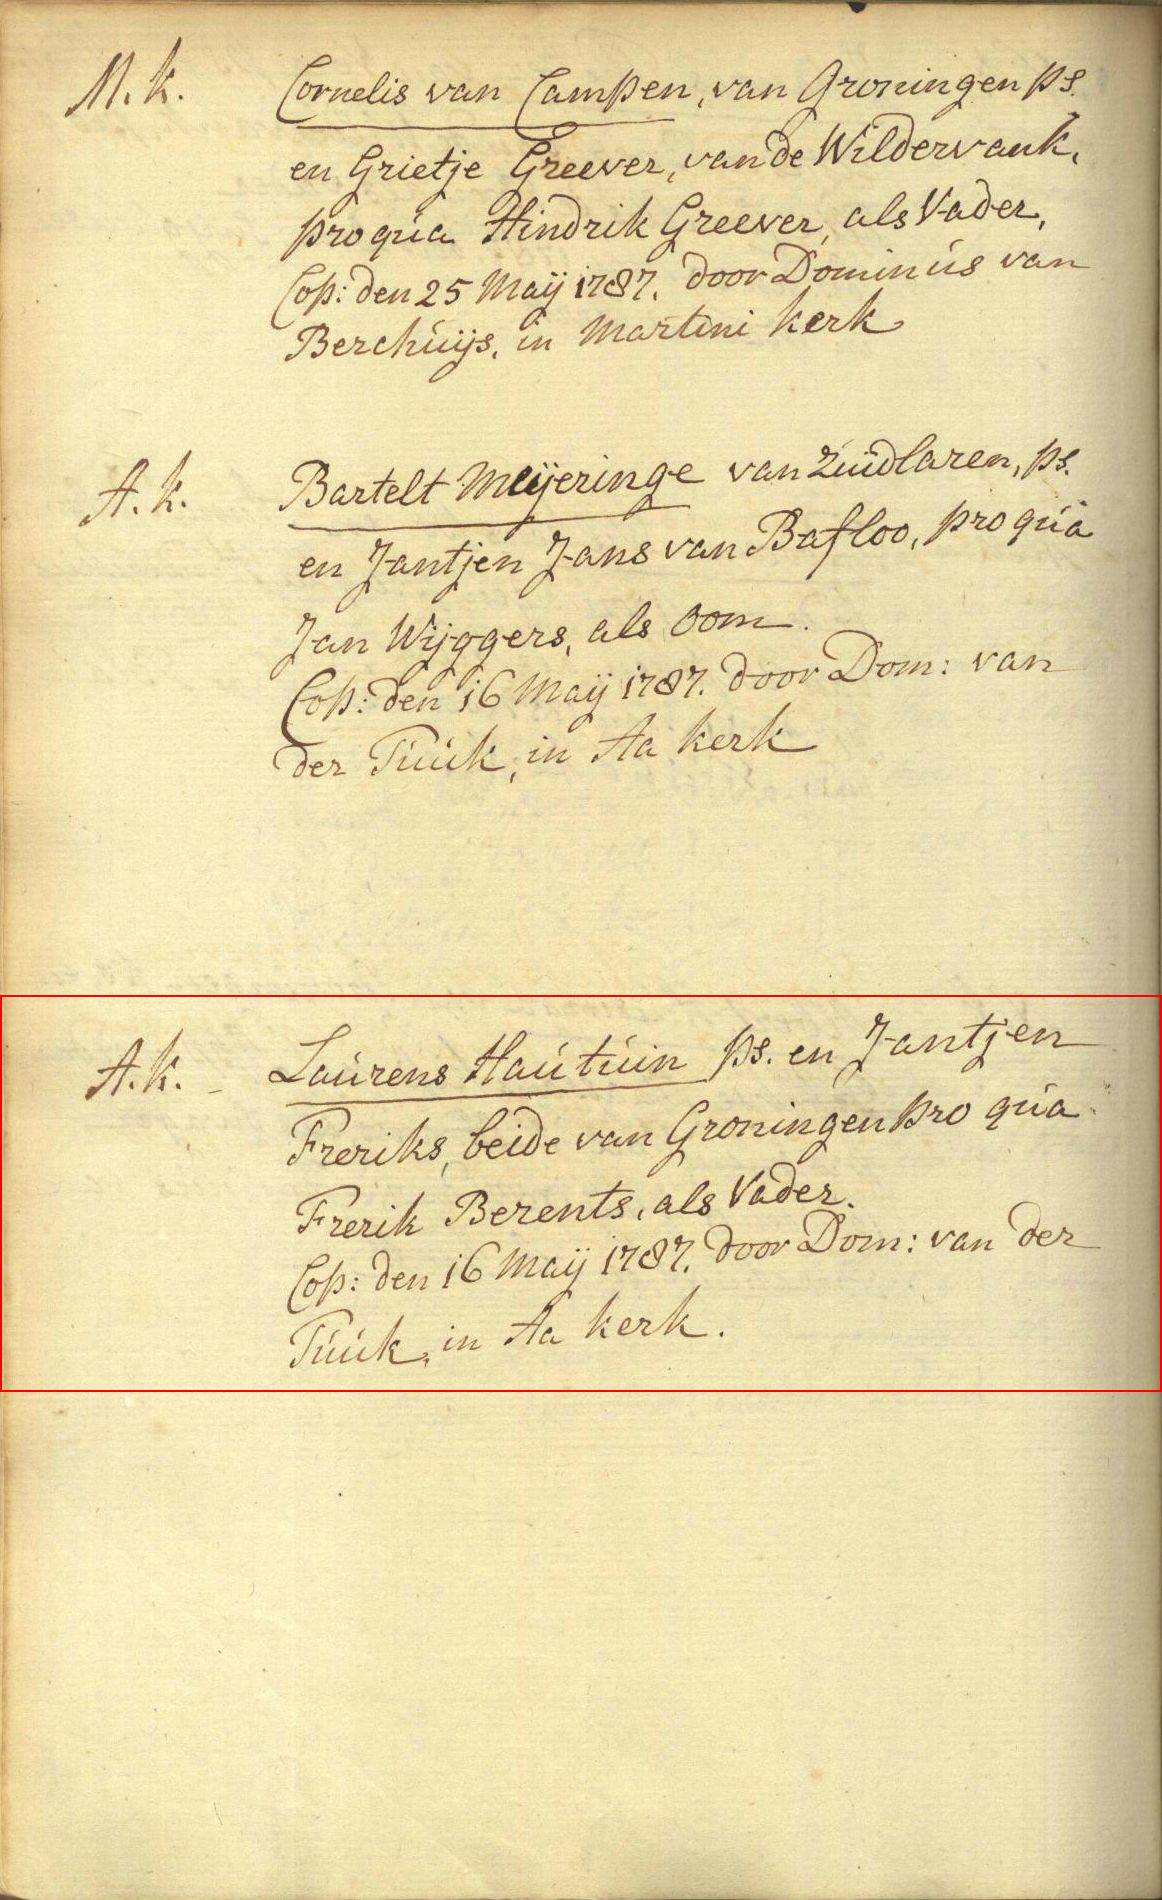 M. k. Cornelis van Campen, van Groningen ps.
en Grietje Greever, van de Wildervank,
pro qúa Hindrik Greever, als Vader,
Cop: den 25 Maÿ 1787. door Dominús van
Berchúijs, in Martini kerk
A. k. Bartelt Meijeringe van Zúidlaren, ps.
en Jantjen Jans van Bafloo, pro qúa
Jan Wijggers, als Oom.
Cop: den 16 Maÿ 1787. door Dom: van
der Túúk, in Aa kerk
A. k. - Laúrens Haútúin ps. en Jantjen
Freriks, beide van Groningen pro qúa
Frerik Berents, als Vader.
Cop: den 16 Maÿ 1787. door Dom: van der
Túúk, in Aa kerk.